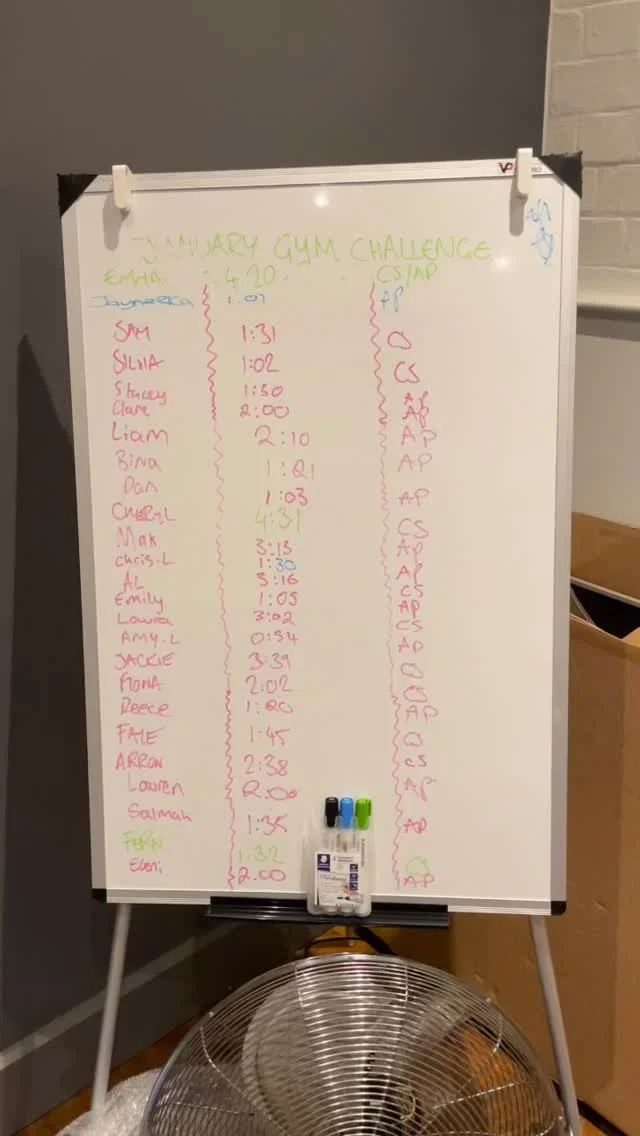 JANUARY GYM CHALLENGE
EMMA 4:20 CS/AP
1:01 AP
SAM 1:31 CS
SILVIA 1:02 CS
Stacey 1:50 AP
Clare 2:00 AP
Liam 2:10 AP
Bina 1:21 AP
Dan 1:03 AP
CHERYL 4:31 CS
Mak 3:13 AP
Chris.L 1:30 AP
AL 3:16 CS
Emily 1:05 AP
3:02 CS
AMY.L 0:54 AP
JACKIE 3:39 CS
FIONA 2:02 CS
Reece 1:20 AP
FAYE 1:45 CS
ARRON 2:38 CS
Lauren 2:00 AP
Salmah 1:35 AP
FERN 1:32 CS
Eleni 2.00 AP